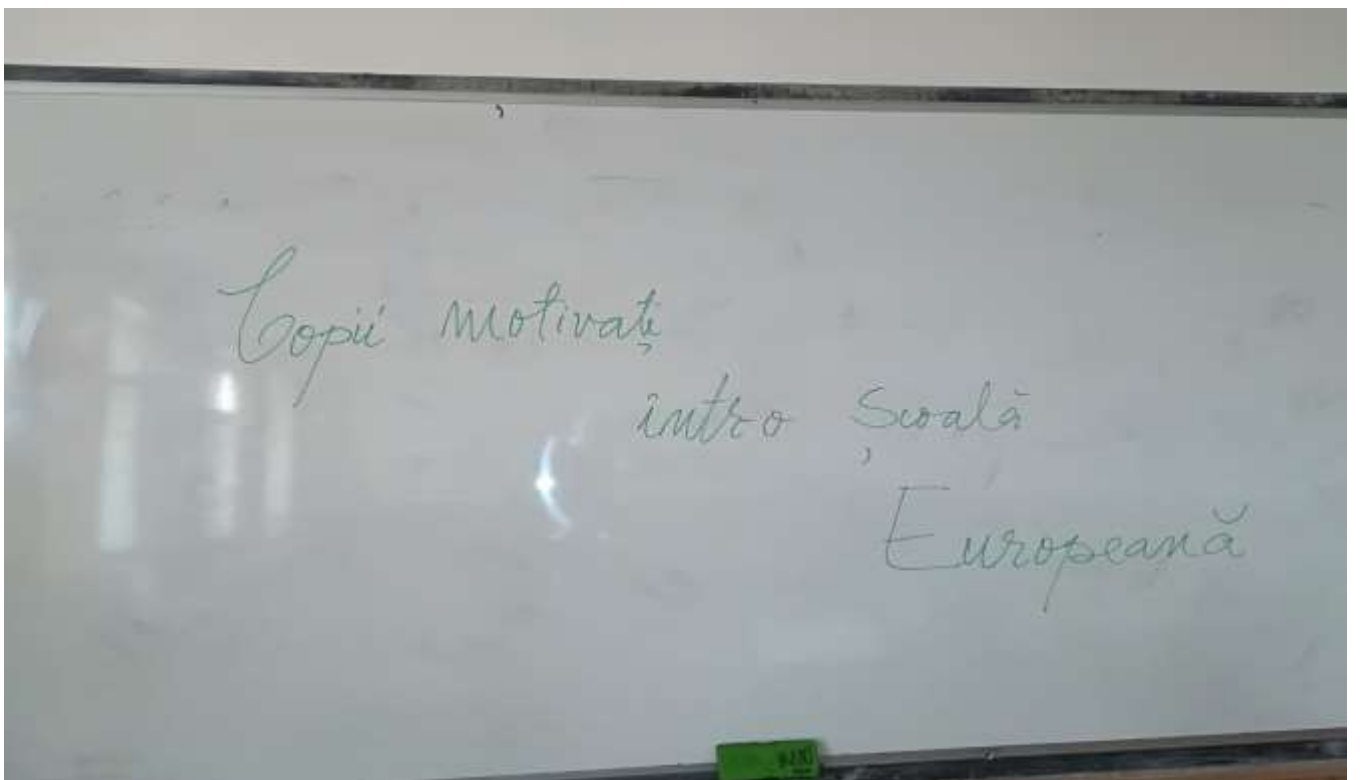 Copii motivați
intro Școală
Europeană